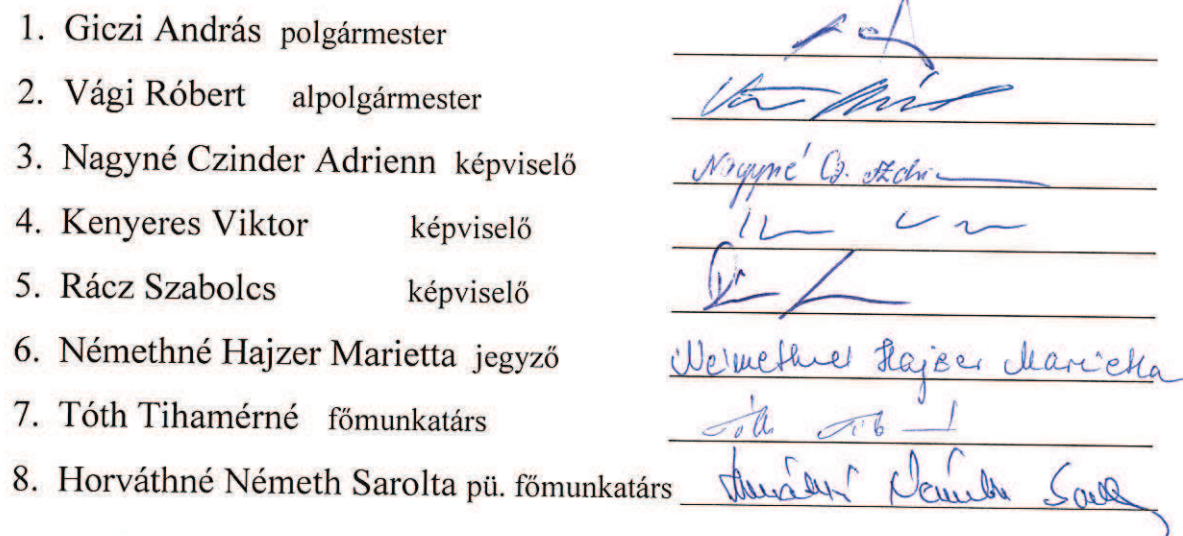 1. Giczi András polgármester
2. Vági Róbert alpolgármester
3. Nagyné Czinder Adrienn képviselő Nagyné Cz.
4. Kenyeres Viktor képviselő
5. Rácz Szabolcs képviselő
6. Némethné Hajzer Marietta jegyző Némethné Hajzer Marietta
7. Tóth Tihamérné főmunkatárs Tóth
8. Horváthné Németh Sarolta pü. főmunkatárs Horváthné Németh